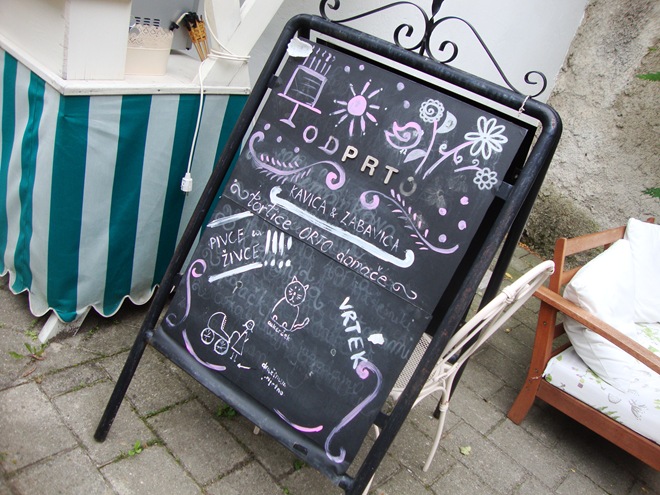 ODPRTO
KAVICA & ZABAVICA
tortice ORTO domače
PIVCE in
ŽIVCE !!!!
VRTEK
družinam
prijazno